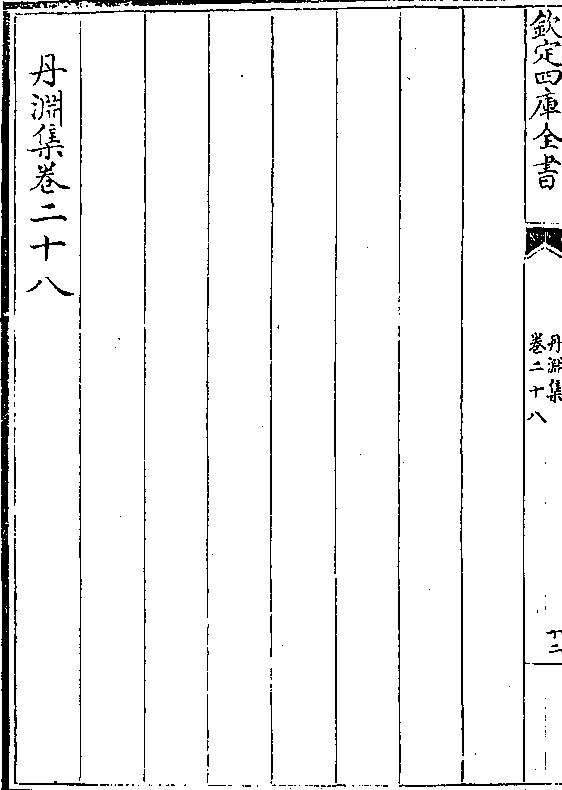 欽定四庫全書
丹淵集
卷二十八
十二
丹淵集卷二十八